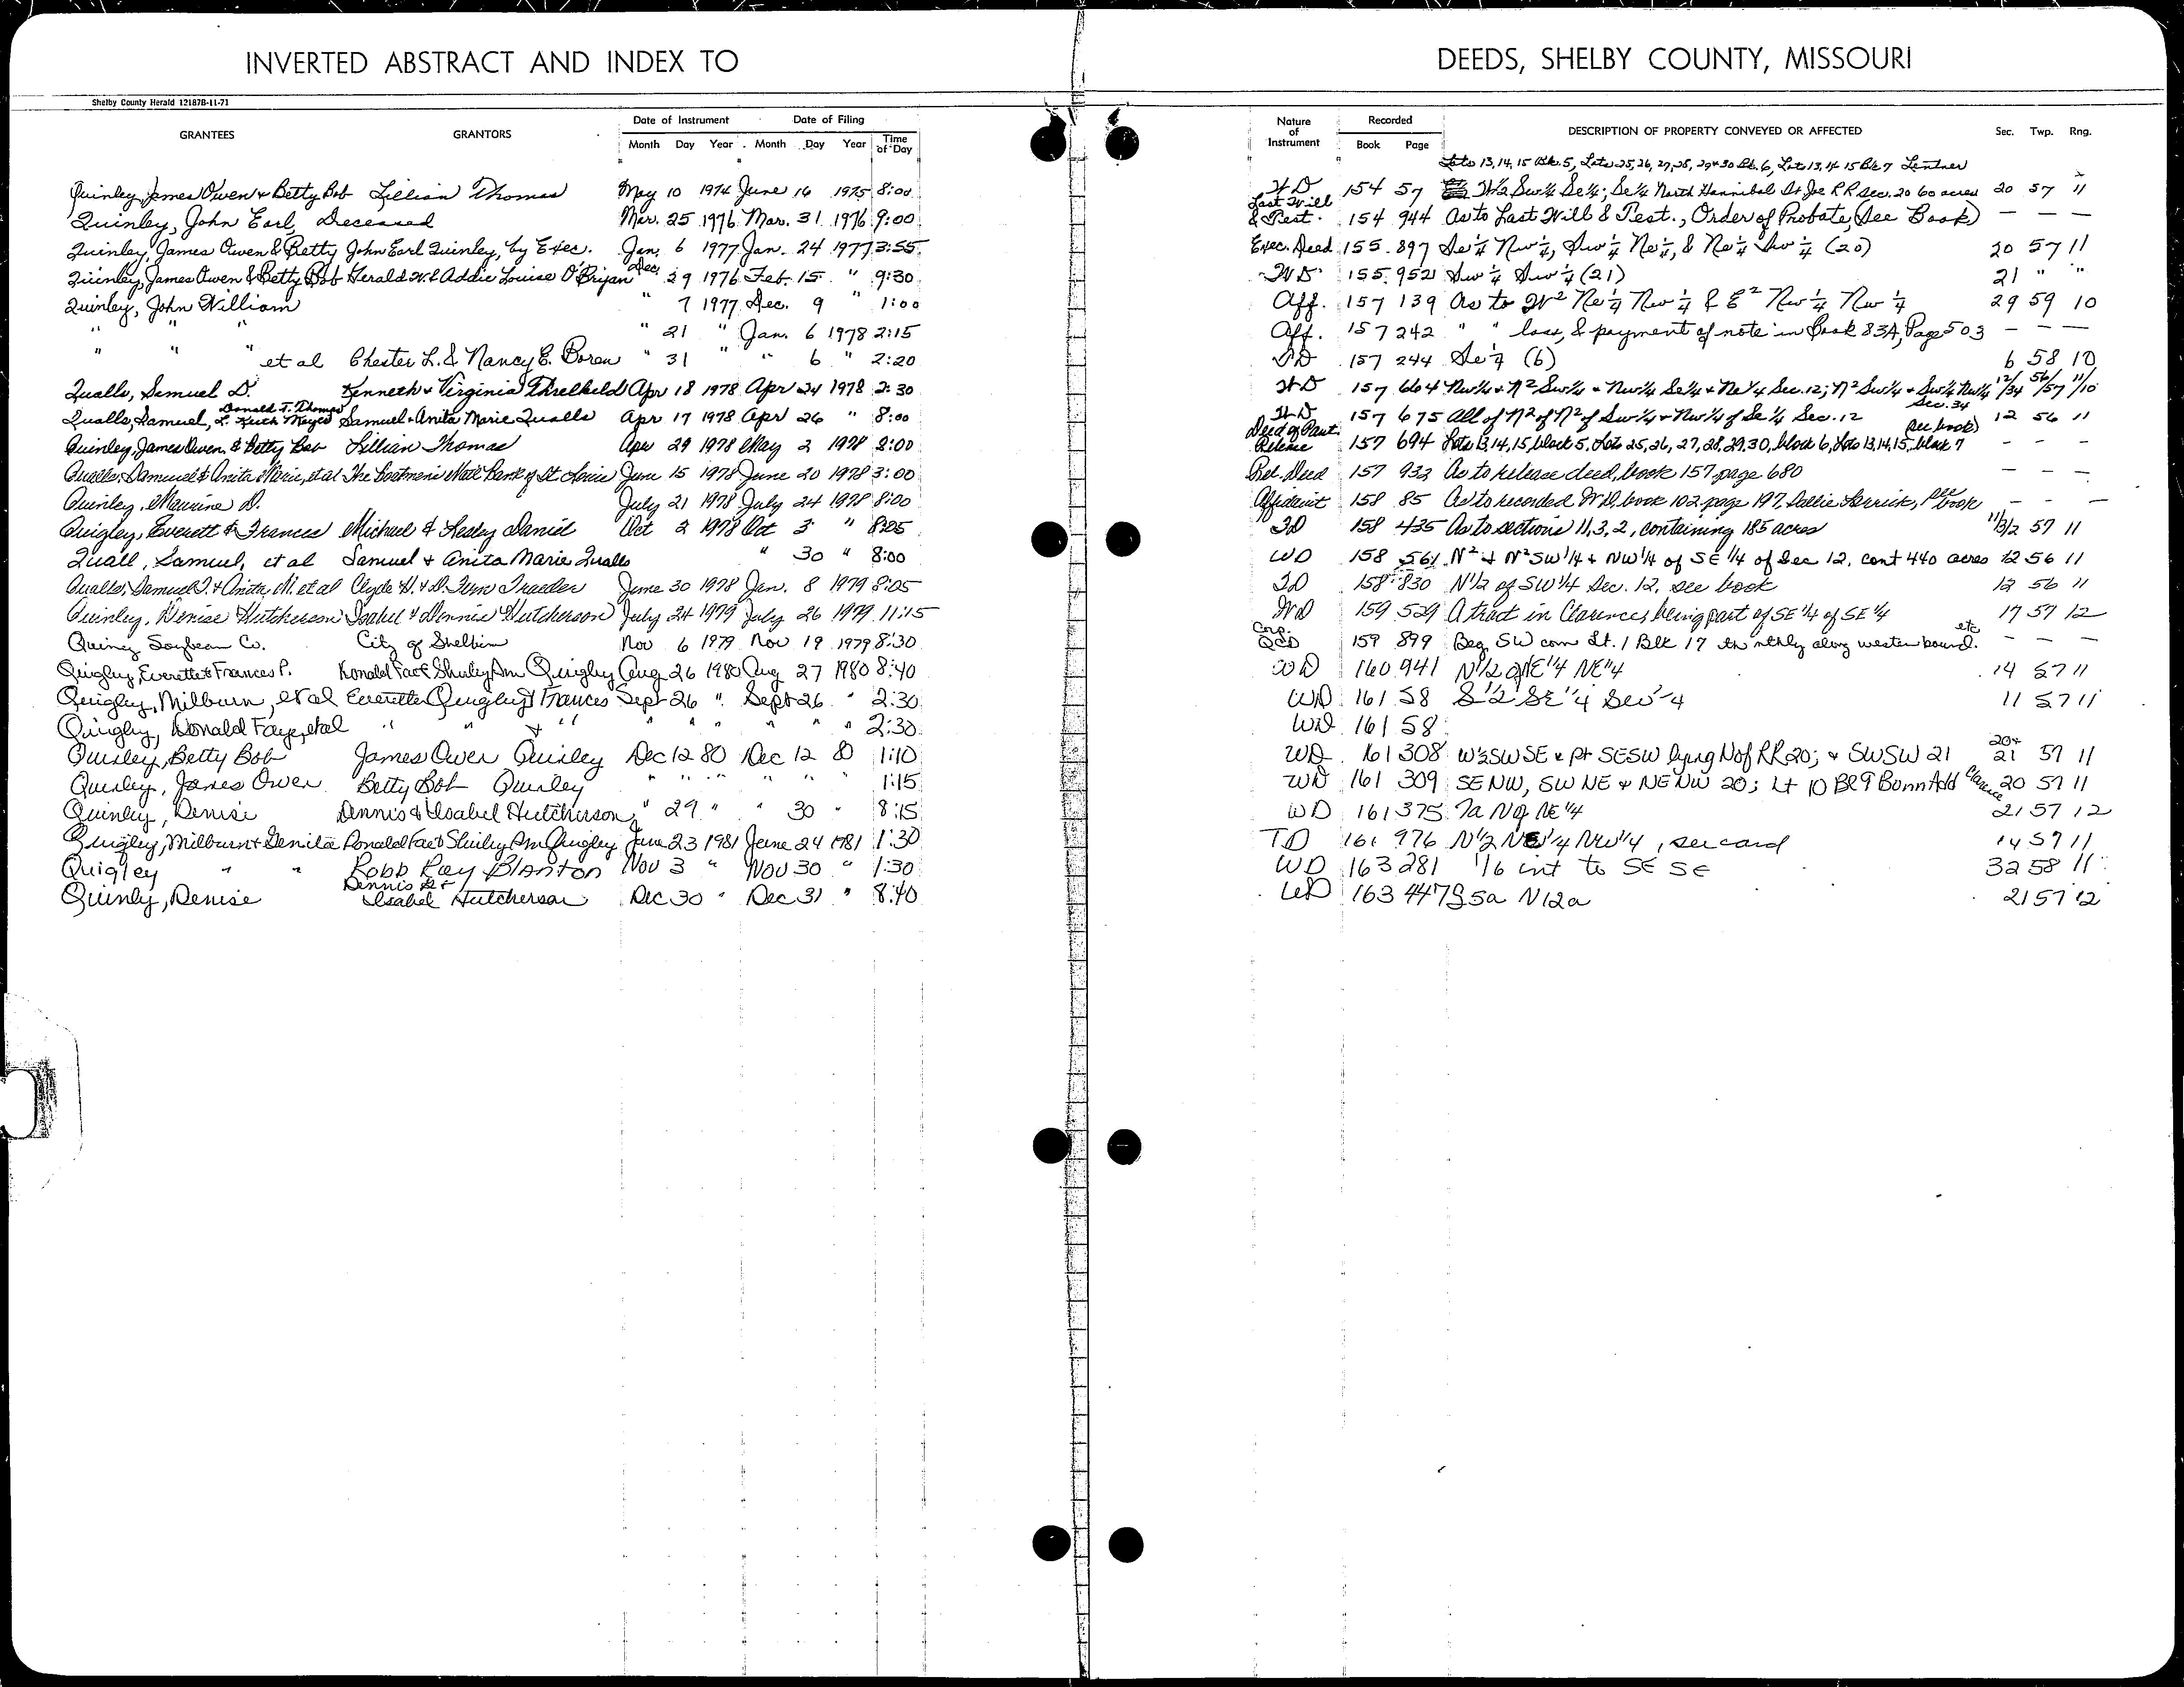 INVERTED ABSTRACT AND INDEX TO DEEDS, SHELBY COUNTY, MISSOURI
Shelby County Herald 12187B-11-71
GRANTEES GRANTORS Date of Instrument Date of Filing Time of Day Nature of Instrument Recorded DESCRIPTION OF PROPERTY CONVEYED OR AFFECTED Sec. Twp. Rng.
Month Day Year Month Day Year Book Page
Lots 13, 14, 15 Blk. 5, Lots 25, 26, 27, 28, 29 & 30 Bk. 6, Lots 13, 14 15 Blk 7 Lentner
Quinley, James Owen & Betty Bob Lillian Thomas May 10 1974 June 16 1975 8:00 WD 154 57 W½ Sw¼ Se¼; Se¼ North Hannibal St Joe RR Sec. 20 60 acres 20 57 11
Quinley, John Earl, Deceased Mar. 25 1976 Mar. 31 1976 9:00 Last Will & Test. 154 944 As to Last Will & Test., Order of Probate, (See Book) — — —
Quinley, James Owen & Betty John Earl Quinley, by Exec. Jan. 6 1977 Jan. 24 1977 3:55 Exec. Deed 155 897 Se¼ Nw¼, Sw¼ Ne¼, & Ne¼ Sw¼ (20) 20 57 11
Quinley, James Owen & Betty Bob Gerald W. & Addie Louise O'Bryan Dec. 29 1976 Feb. 15 " 9:30 WD 155 952 Sw¼ Sw¼ (21) 21 " "
Quinley, John William " 7 1977 Dec. 9 " 1:00 Aff. 157 139 As to W² Ne¼ Nw¼ & E² Nw¼ Nw¼ 29 59 10
" " " " 21 " Jan. 6 1978 2:15 Aff. 157 242 " " loss, & payment of note in Book 83A, Page 503 — — —
" " " et al Chester L. & Nancy E. Boren " 31 " " 6 " 2:20 157 244 Se¼ (6) 6 58 10
Qualls, Samuel D. Kenneth & Virginia Threlkeld Apr 18 1978 Apr 24 1978 2:30 WD 157 664 Nw¼ & N² Sw¼ & Nw¼ Se¼ & Ne¼ Sec. 12; N² Sw¼ & Sw¼ Nw¼ Sec. 34 12/34 56/57 11/10
Qualls, Samuel, Donald T. Thomas, L. Keith Meyer Samuel & Anita Marie Qualls Apr 17 1978 Apr 26 " 8:00 WD 157 675 All of N² of N² of Sw¼ & Nw¼ of Se¼ Sec. 12 (see book) 12 56 11
Quinley, James Owen, & Betty Bob Lillian Thomas Apr 29 1978 May 2 1978 8:00 Deed of Part. Release 157 694 Lots 13, 14, 15, block 5, Lots 25, 26, 27, 28, 29, 30, block 6, Lots 13, 14, 15, block 7 - - -
Qualls, Samuel & Anita Marie, et al The Boatmens Natl Bank of St. Louis June 15 1978 June 20 1978 3:00 Rel. Deed 157 932 As to release deed, book 157, page 680 — — —
Quinley, Maurine D. July 21 1978 July 24 1978 8:00 Affidavit 158 85 As to recorded WD, book 102, page 197, Sallie Kerrick, see book - - -
Quigley, Everett & Frances Michael & Lesley Daniel Oct 2 1978 Oct 3 " 8:25 158 435 As to sections 11, 3, 2, containing 185 acres 11/3/2 57 11
Quall, Samuel, et al Samuel & Anita Marie Qualls " 30 " 8:00 WD 158 561 N² & N² SW ¼ & NW ¼ of SE ¼ of Sec 12, cont 440 acres 12 56 11
Qualls, Samuel D. & Anita M. et al Clyde H. & D. Fern Traeder June 30 1978 Jan. 8 1979 8:05 158 830 N½ of SW ¼ Sec. 12, see book 12 56 11
Quinley, Denise Hutcherson Isabel & Dennis Hutcherson July 24 1979 July 26 1979 11:15 WD 159 529 A tract in Clarence, being part of SE ¼ of SE ¼ 17 57 12
Quincy Soybean Co. City of Shelbina Nov 6 1979 Nov 19 1979 8:30 Corp. QCD 159 899 Beg SW corn Lt. 1 Blk 17 th nthly along western bound. etc — — —
Quigley, Everett & Frances P. Ronald Fae & Shirley Ann Quigley Aug 26 1980 Aug 27 1980 8:40 WD 160 941 N½ of NE¼ NE¼ 14 57 11
Quigley, Milburn, et al Everette Quigley & Frances Sept 26 " Sept 26 " 2:30 WD 161 58 S½ SE¼ SW¼ 11 57 11
Quigley, Donald Faye, et al " " & " " " " " " 2:30 WD 161 58
Quinley, Betty Bob James Owen Quinley Dec 12 80 Dec 12 80 1:10 WD 161 308 W½SWSE & pt SESW lying N of RR 20; & SWSW 21 20+ 21 57 11
Quinley, James Owen Betty Bob Quinley " " " " " " 1:15 WD 161 309 SE NW, SW NE & NE NW 20; Lt 10 Bl 9 Bunn Add Clarence 20 57 11
Quinley, Denise Dennis & Isabel Hutcherson " 29 " " 30 " 8:15 WD 161 375 7a N of NE¼ 21 57 12
Quigley, Milburn & Genita Ronald Fae & Shirley Ann Quigley June 23 1981 June 24 1981 1:30 TD 161 976 N½ NE¼ NW¼, see card 14 57 11
Quigley " " Robb Ray Blanton Nov 3 " Nov 30 " 1:30 WD 163 281 1/6 int to SE SE 32 58 11
Quinly, Denise Dennis & Isabel Hutcherson Dec 30 " Dec 31 " 8:40 WD 163 447 S5a N12a 21 57 12